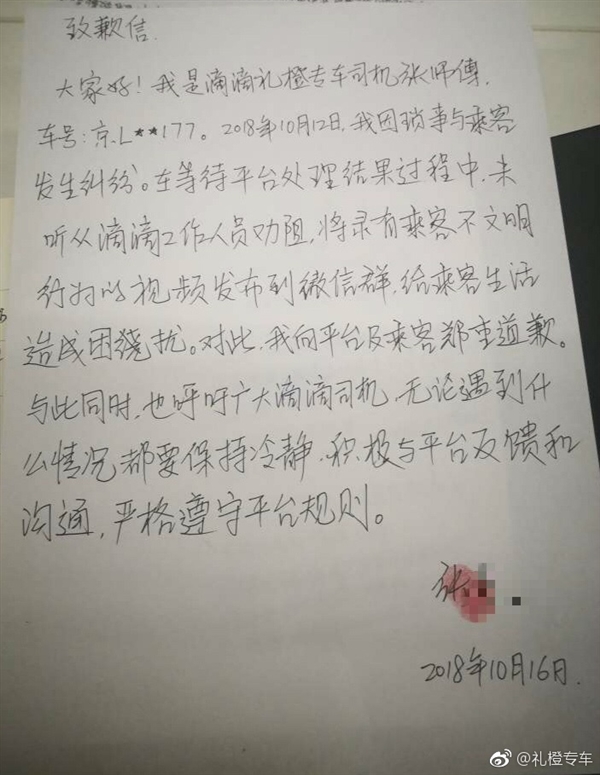 致歉信.
大家好！我是滴滴礼橙专车司机张师傅.
车号:京.L**177。2018年10月12日,我因琐事与乘客
发生纠纷。在等待平台处理结果过程中.未
听从滴滴工作人员劝阻,将录有乘客不文明
行为的视频发布到微信群,给乘客生活
造成困绕扰。对此,我向平台及乘客郑重道歉。
与此同时,也呼吁广大滴滴司机,无论遇到什
么情况都要保持冷静.积极与平台反馈和
沟通,严格遵守平台规则。
张
2018年10月16日.
@礼橙专车